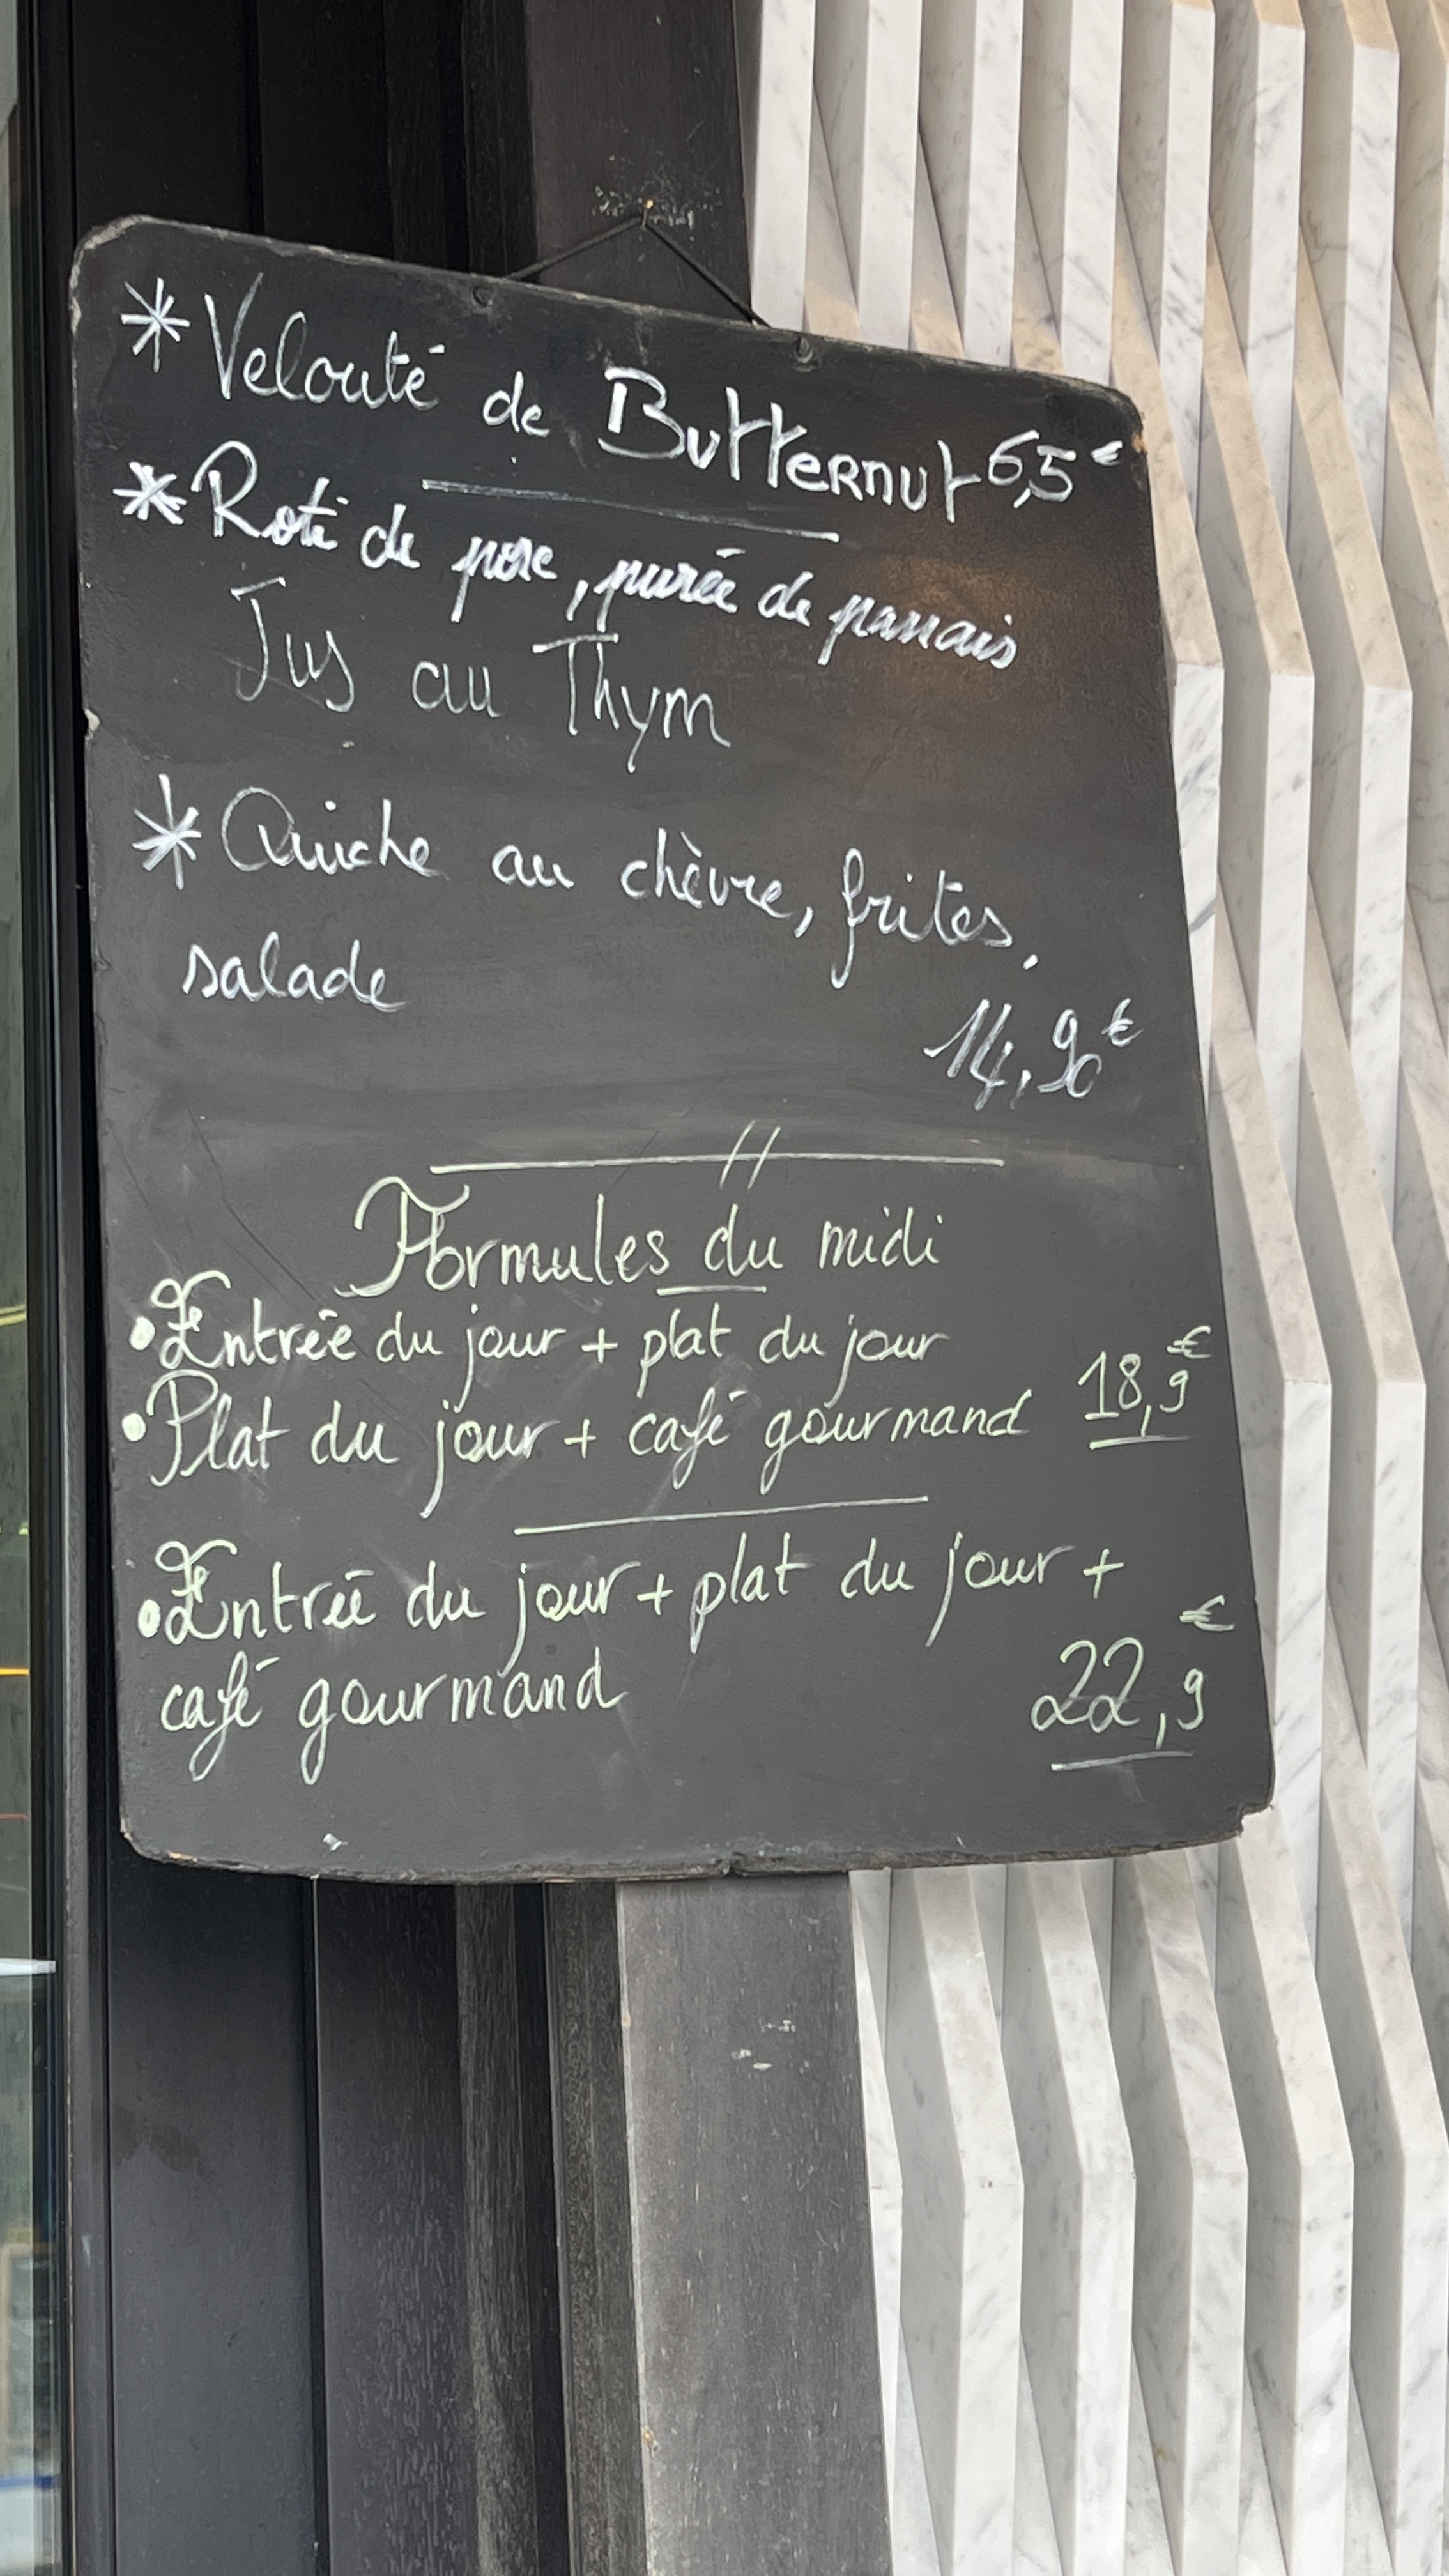 * Velouté de Butternut 6,5€
* Roti de porc, purée de panais
Jus au Thym
* Quiche au chèvre, frites,
salade
14,90€
Formules du midi
• Entrée du jour + plat du jour
• Plat du jour + café gourmand 18,9€
• Entrée du jour + plat du jour +
café gourmand 22,9€